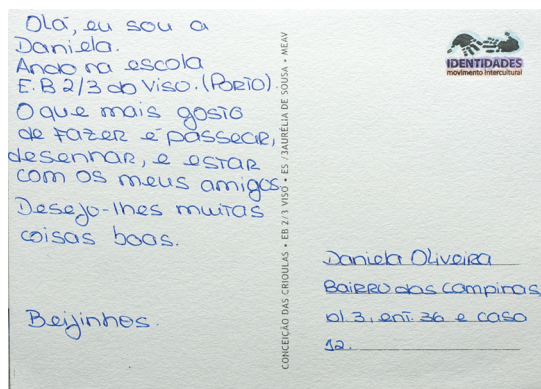 Olá, eu sou a
Daniela.
Ando na escola
E.B 2/3 do Viso. (Porto).
O que mais gosto
de fazer é passear,
desenhar, e estar
com os meus amigos.
Desejo-lhes muitas
coisas boas.
Beijinhos.
CONCEIÇÃO DAS CRIOULAS • EB 2/3 VISO • ES /3AURÉLIA DE SOUSA • MEAV
IDENTIDADES
movimento intercultural
Daniela Oliveira
Bairro das Campinas,
bl. 3, ent. 36 e casa
12.